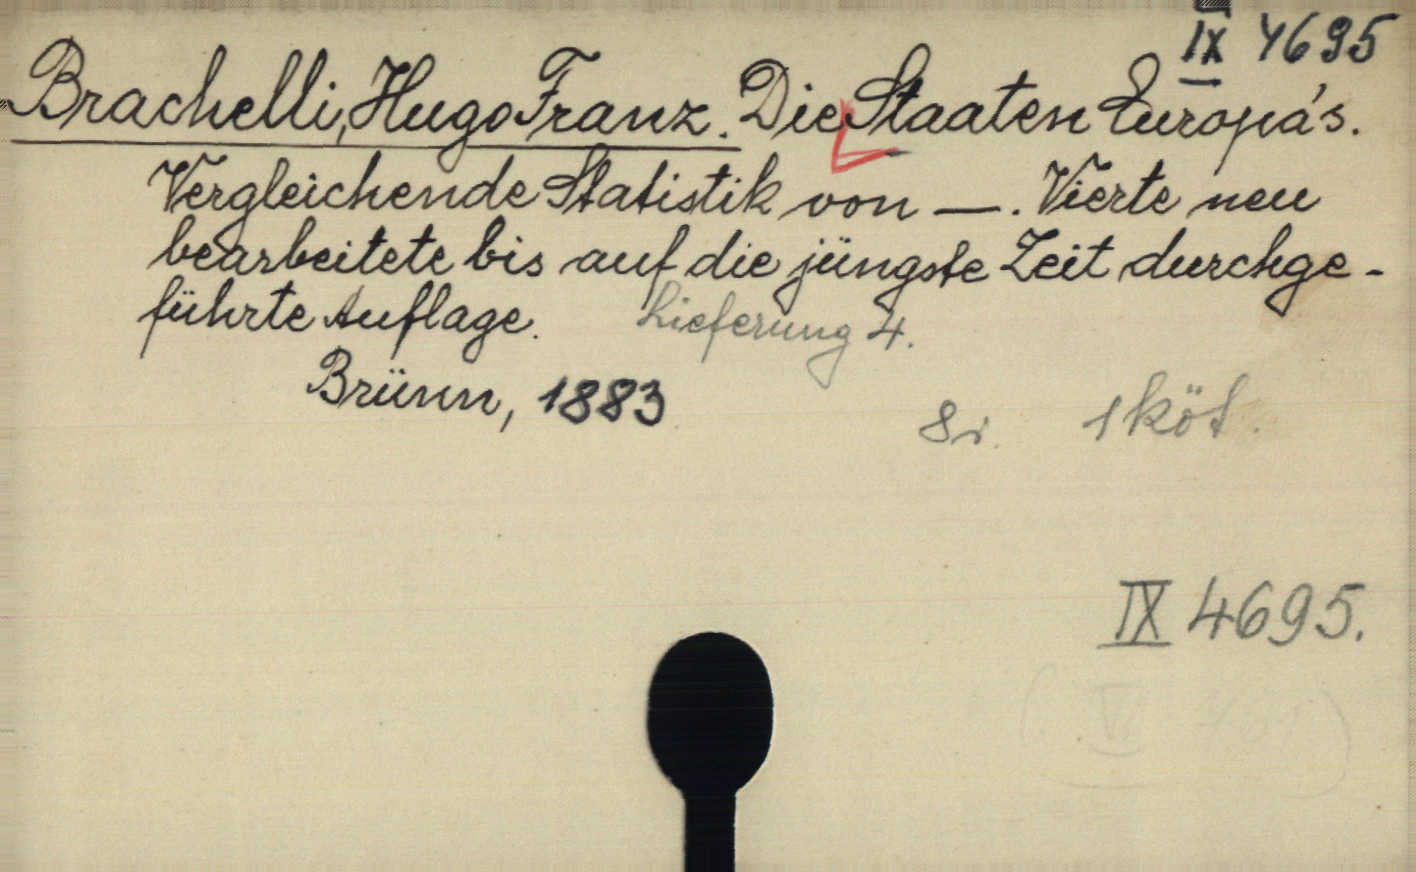 IX 4695
Brachelli, Hugo Franz. Die Staaten Europa's.
Vergleichende Statistik von —. Vierte neu
bearbeitete bis auf die jüngste Zeit durchge-
führte Auflage. Lieferung 4.
Brünn, 1883
8r. 1 köt.
IX 4695.